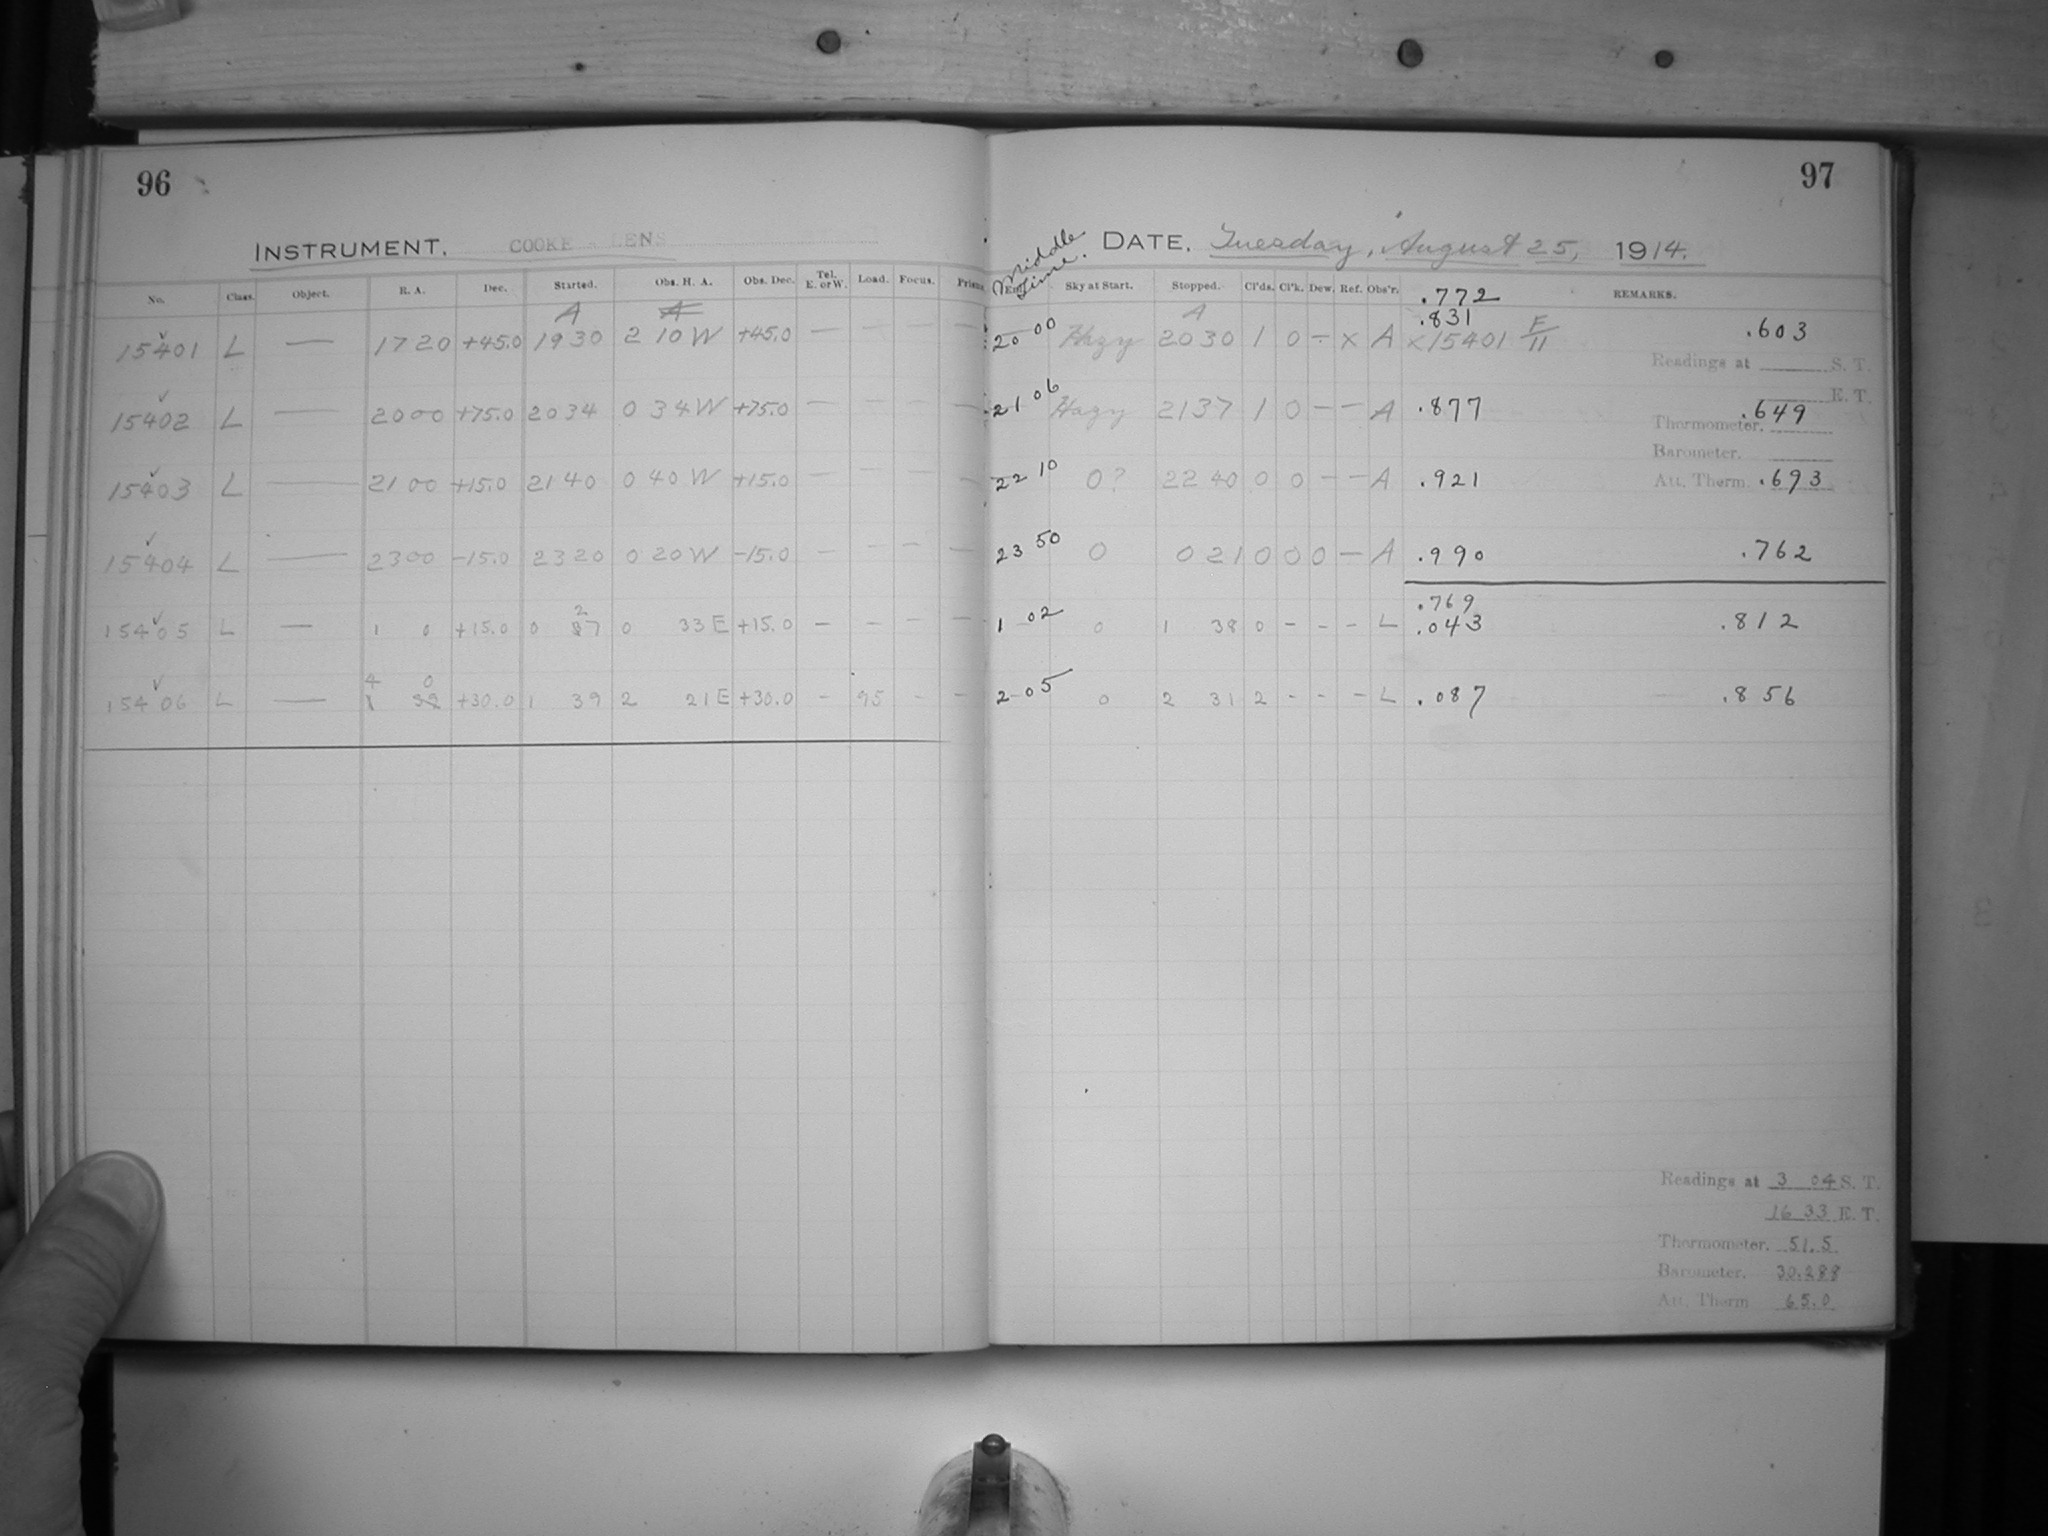 96
INSTRUMENT. COOKE - LENS
No. Class. Object. R. A. Dec. Started. Obs. H. A. Obs. Dec. Tel. E. or W. Load. Focus. Prism.
A A
15401 L — 17 20 +45.0 19 30 2 10 W +45.0 — — — —
15402 L — 20 00 +75.0 20 34 0 34 W +75.0 — — — —
15403 L — 21 00 +15.0 21 40 0 40 W +15.0 — — — —
15404 L — 23 00 -15.0 23 20 0 20 W -15.0 — — — —
2
15405 L — 1 0 +15.0 0 37 0 33 E +15.0 — — — —
4 0
15406 L — 1 32 +30.0 1 39 2 21 E +30.0 - 95 - -
97
DATE. Tuesday, August 25, 1914.
Middle Time.
Sky at Start. Stopped. Cl'ds. Cl'k. Dew. Ref. Obs'r. REMARKS.
.772
A .831
20 00 Hazy 20 30 1 0 - x A x15401 F/11 .603
Readings at S. T.
E. T.
21 06 Hazy 21 37 1 0 - - A .877 .649
Thermometer.
Barometer.
22 10 0? 22 40 0 0 - - A .921 Att. Therm. .693
23 50 0 0 21 0 0 0 - A .990 .762
.769
1 02 0 1 38 0 - - - L .043 .812
2 05 0 2 31 2 - - - L .087 .856
Readings at 3 04 S. T.
16 33 E. T.
Thermometer. 51.5
Barometer. 30.288
Att. Therm 65.0